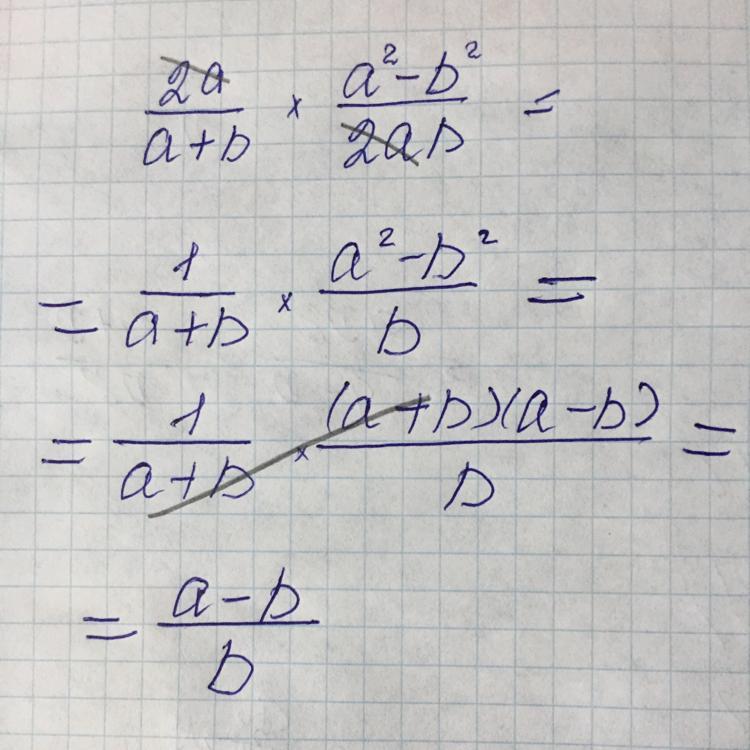 2a/(a+b) × (a²-b²)/(2ab) =
= 1/(a+b) × (a²-b²)/b =
= 1/(a+b) × (a+b)(a-b)/b =
= (a-b)/b